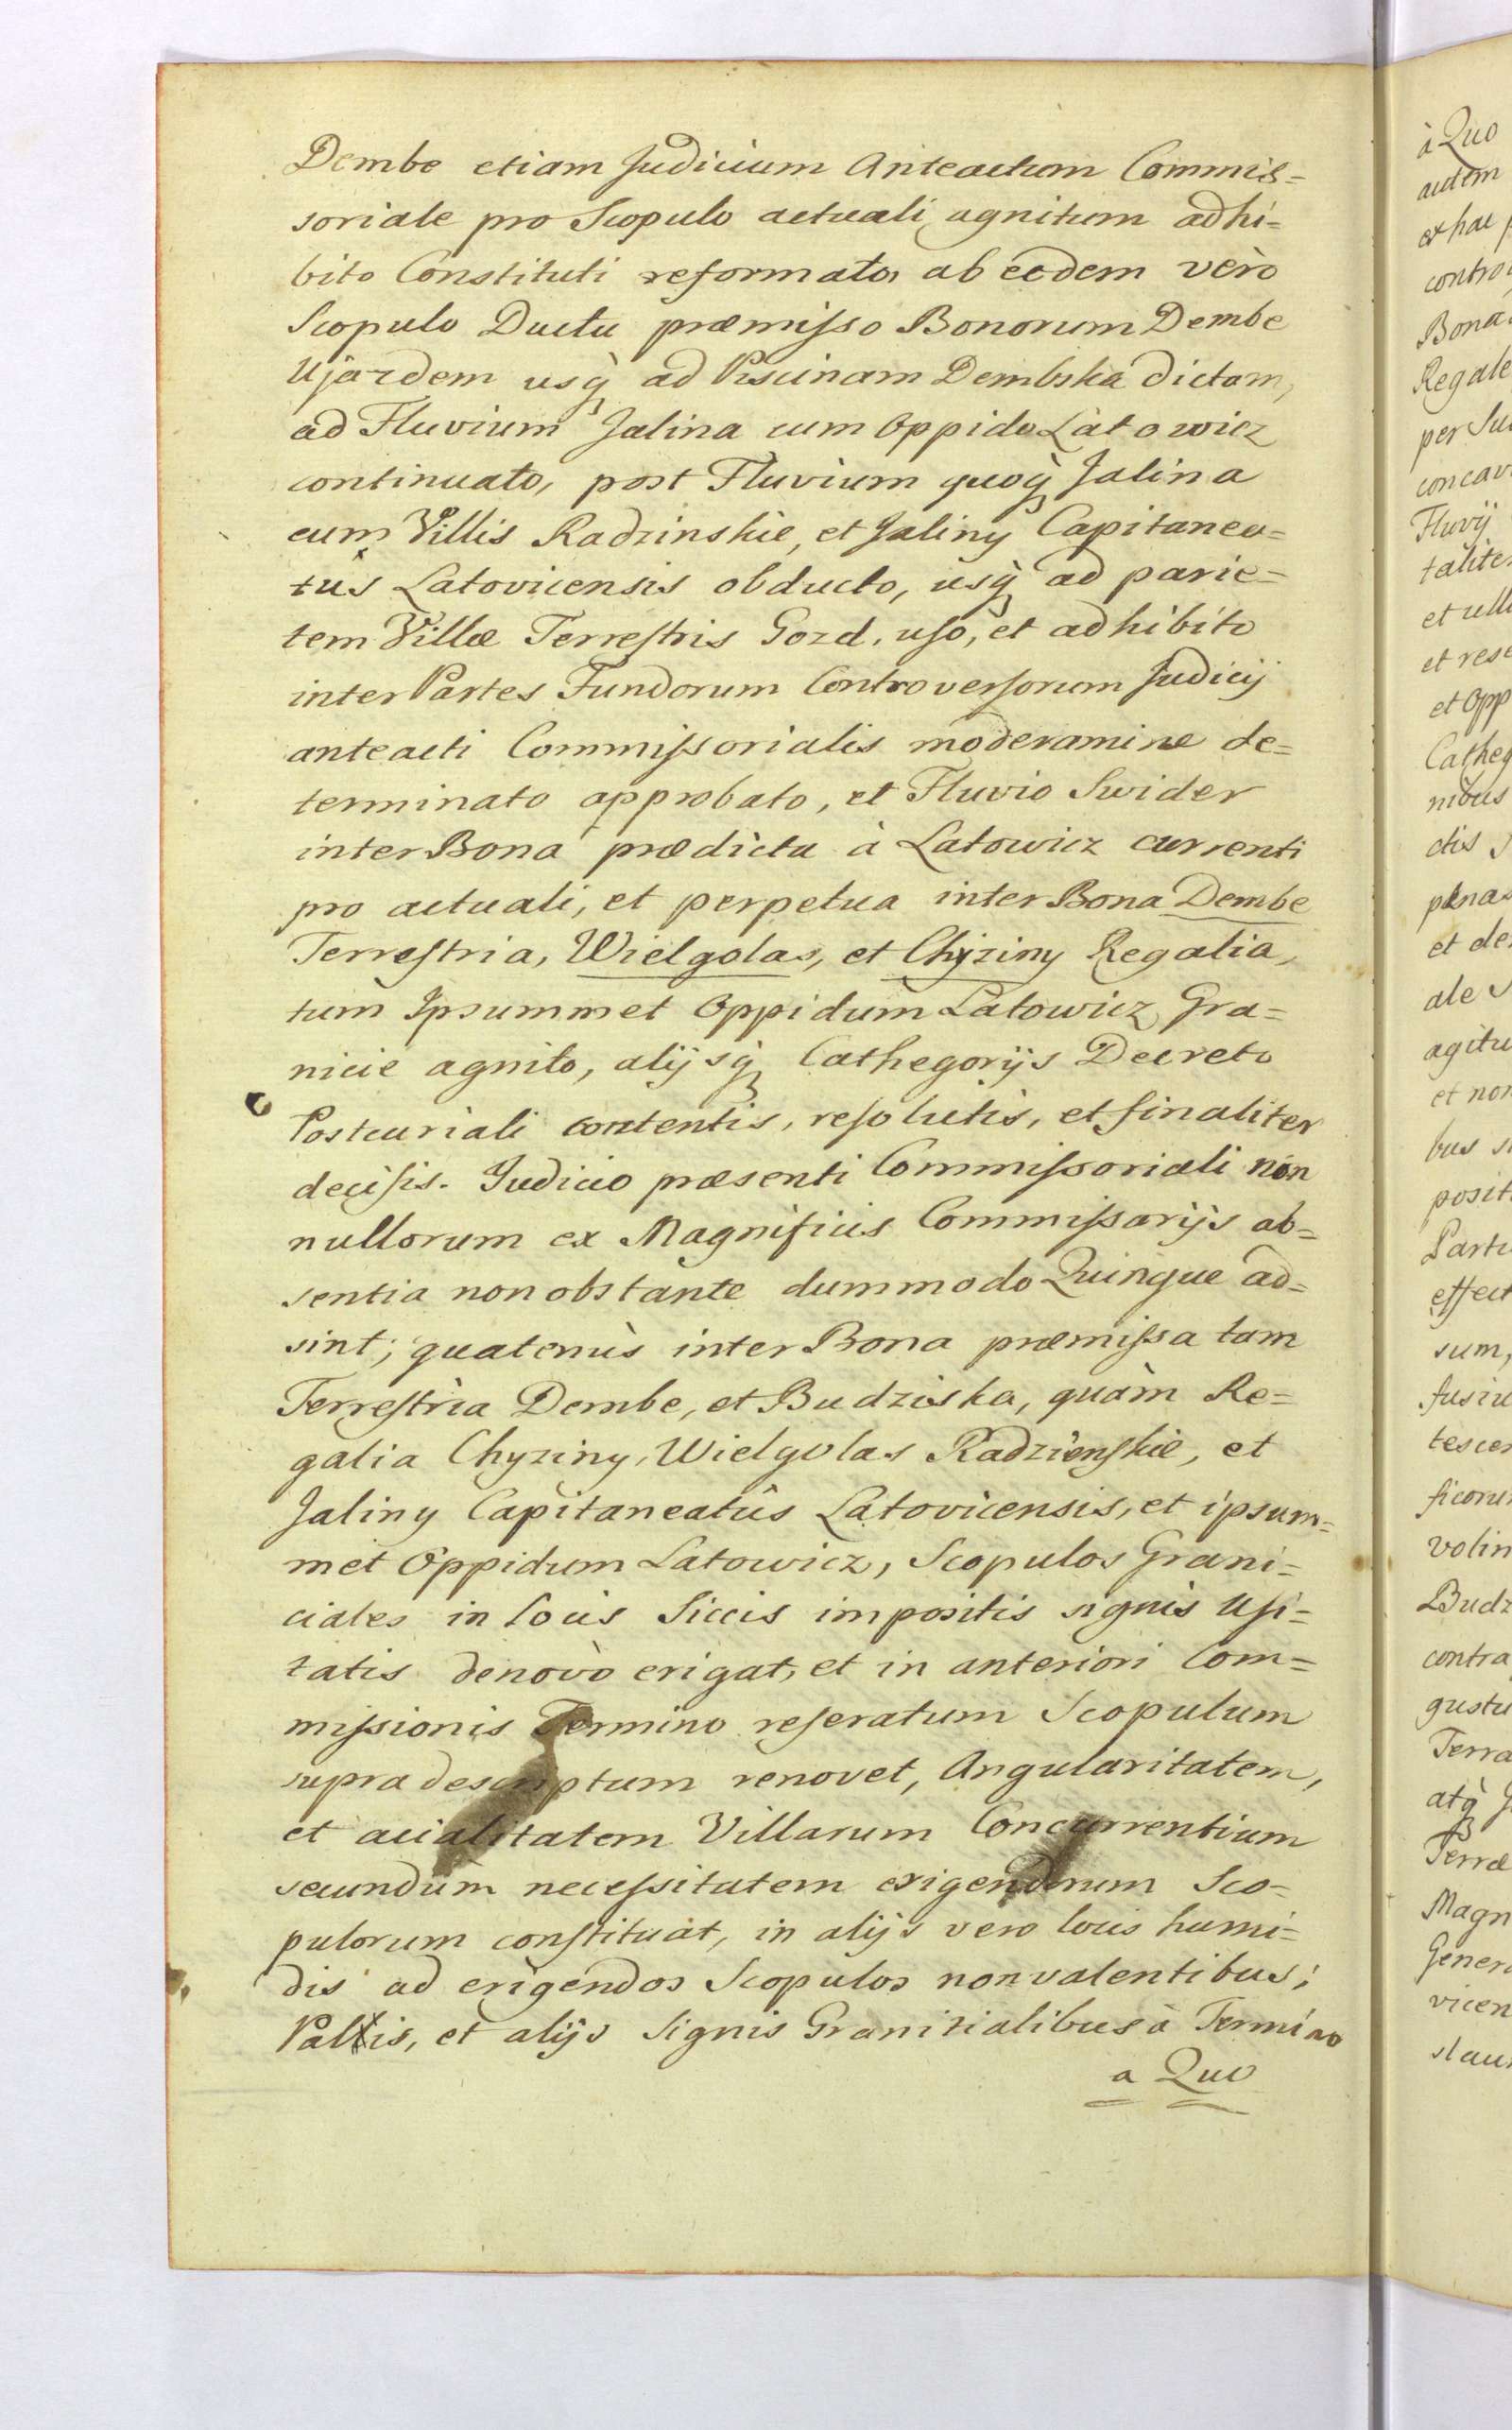 Dembe etiam Judicium Anteactum Commis=
soriale pro Scopulo actuali agnitum adhi=
bito Constituti reformato, ab eodem verò
Scopulo Ductu præmisso Bonorum Dembe
Ujazdem usq̀ ad Piscinam Dembska dictam,
ad Fluvium Jalina cum Oppido Latowicz
continuato, post Fluvium quoq̀ Jalina
cum Villis Radzinskie, et Jaliny Capitanea=
tûs Latovicensis obducto, usq̀ ad parie=
tem Villæ Terrestris Gozd, uso, et adhibito
inter Partes Fundorum Controversorum Judicij
anteacti Commissorialis moderamine de=
terminato approbato, et Fluvio Swider
inter Bona prædicta à Latowicz currenti
pro actuali, et perpetua inter Bona Dembe
Terrestria, Wielgolas, et Chyziny Regalia,
tum Ipsummet Oppidum Latowicz Gra=
nicie agnito, alijsq̀ Cathegorijs Decreto
Postcuriali contentis, resolutis, et finaliter
decisis. Judicio præsenti Commissoriali non
nullorum ex Magnificis Commissarijs ab=
sentia non obstante dummodo Quinque ad=
sint; quatenùs inter Bona præmissa tam
Terrestria Dembe, et Budziska, quàm Re=
galia Chyziny, Wielgolas Radzienskie, et
Jaliny Capitaneatûs Latovicensis, et ipsum=
met Oppidum Latowicz, Scopulos Grani=
ciales in locis Siccis impositis signis Usi=
tatis denovò erigat, et in anteriori Com=
missionis Termino reseratum Scopulum
supra descriptum renovet, Angularitatem,
et acialitatem Villarum Concurrentium
secundùm necessitatem erigendorum Sco=
pulorum constituat, in alijs vero locis humi=
dis ad erigendos Scopulos non valentibus;
Palis, et alijs Signis Granitialibus à Termino
a Quo
à Quo
autem
ex hac
Bona
Regale
per
Fluvij
et
et
et Opp
nibus
ctis
et de
ale
et non
bus
posit
effect
sum,
Budz
contra
Terra
atq̀
Terræ
Magn
Gener
vicen